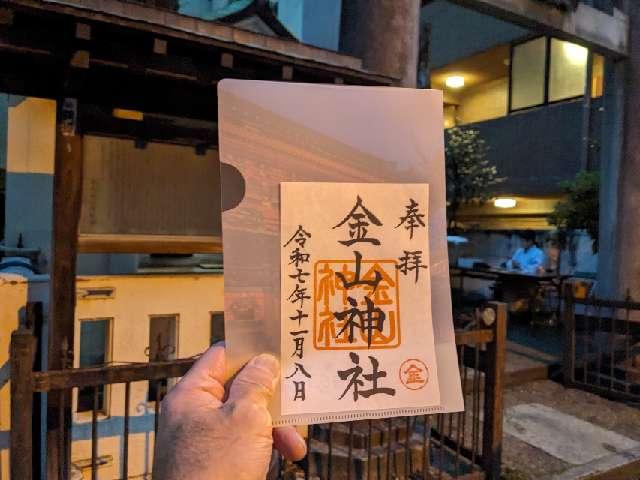 奉拝
金山神社
金山
神社
金
令和七年十一月八日